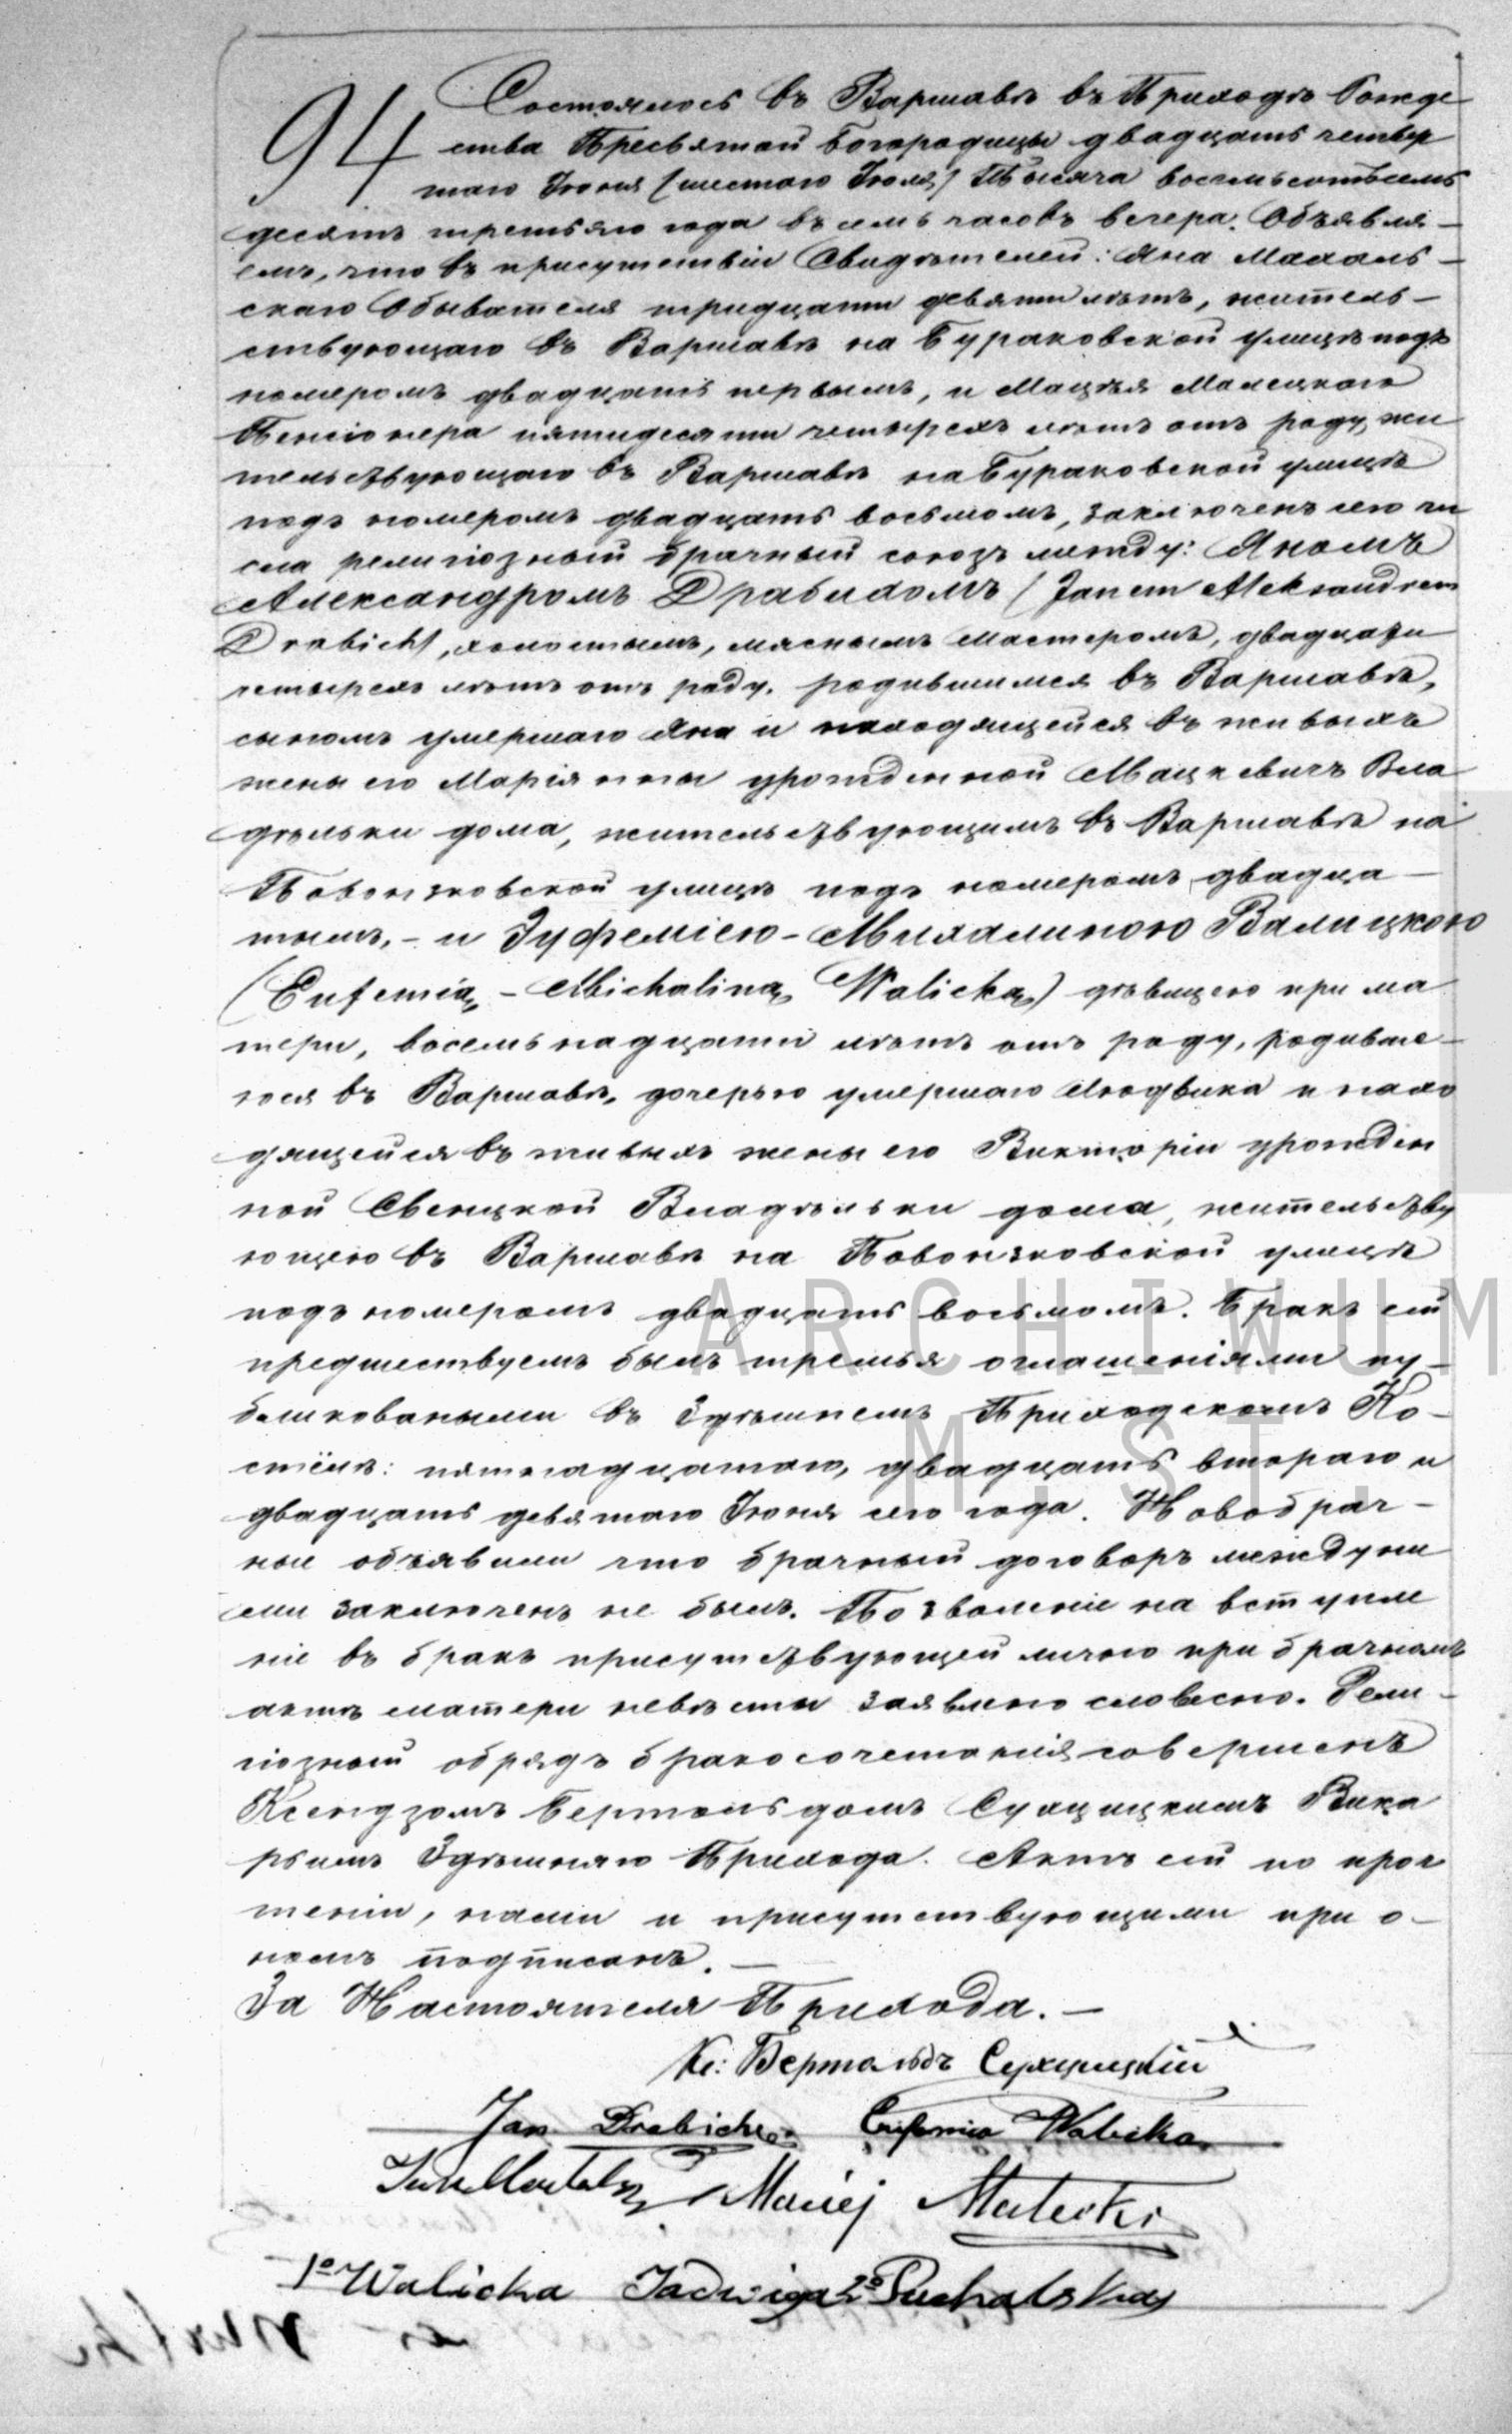 94
Состоялось въ Варшавѣ въ Приходѣ Рожде
ства Пресвятой Богородицы двадцать четвер
таго Іюня (шестаго Іюля) Тысяча восемьсотъ семь
десятъ третьяго года въ семь часовъ вечера. Объявля–
емъ, что въ присутствіи Свидѣтелей: Яна
скаго Обывателя тридцати девяти лѣтъ, житель–
ствующаго въ Варшавѣ на Бураковской улицѣ подъ
номеромъ двадцать первымъ, и Мацѣя Малецкаго
Пенсіонера пятидесяти четырехъ лѣтъ отъ роду, жи
тельствующаго въ Варшавѣ на Бураковской улицѣ
подъ номеромъ двадцать восьмомъ, заключенъ сего чи
сла религіозный брачный союзъ между: Яномъ
Александромъ Драбихомъ (Janem Aleksandrem
Drabicht, холостымъ, мяснымъ мастеромъ, двадцати
четырехъ лѣтъ отъ роду, родившимся въ Варшавѣ,
сыномъ умершаго Яна и находящейся въ живыхъ
жены его Маріянны урожденной Мацкевичъ Вла
дѣльки дома, жительствующимъ въ Варшавѣ на
Повонзковской улицѣ подъ номеромъ двадца–
тымъ, – и Эуфеміею – Михалиною Валицкою
(Eufemią – Michaliną Walicką) дѣвицею при ма
тери, восемьнадцати лѣтъ отъ роду, родивше–
юся въ Варшавѣ, дочерью умершаго Людвика и нахо
дящейся въ живыхъ жены его Викторіи урожден
ной Свенцкой Владѣльки дома, жительству
ющею въ Варшавѣ на Повонзковской улицѣ
подъ номеромъ двадцать восьмомъ. Бракъ сей
предшествуемъ былъ тремя оглашеніями пу–
бликованными въ Здѣшнемъ Приходскомъ Ко–
стёлѣ: пятнадцатаго, двадцать втораго и
двадцать девятаго Іюня сего года. Новобрач–
ные объявили что брачный договоръ между ни
ми заключенъ не былъ. Позволеніе на вступле
ніе въ бракъ присутствующей лично при брачномъ
актѣ матери невѣсты заявлено словесно. Рели–
гіозный обрядъ бракосочетанія совершенъ
Ксендзомъ Бертольдомъ Викa
ріемъ Здѣшняго Прихода. Актъ сей по проч
теніи, нами и присутствующими при о–
номъ подписанъ. –
За Настоятеля Прихода. –
Кс: Бертольдъ
Jan Eufemia Walicka
Jan Maciej Malecki
1º Walicka Jadwiga 2º Puchalska
ARCHIWUM
M. ST.